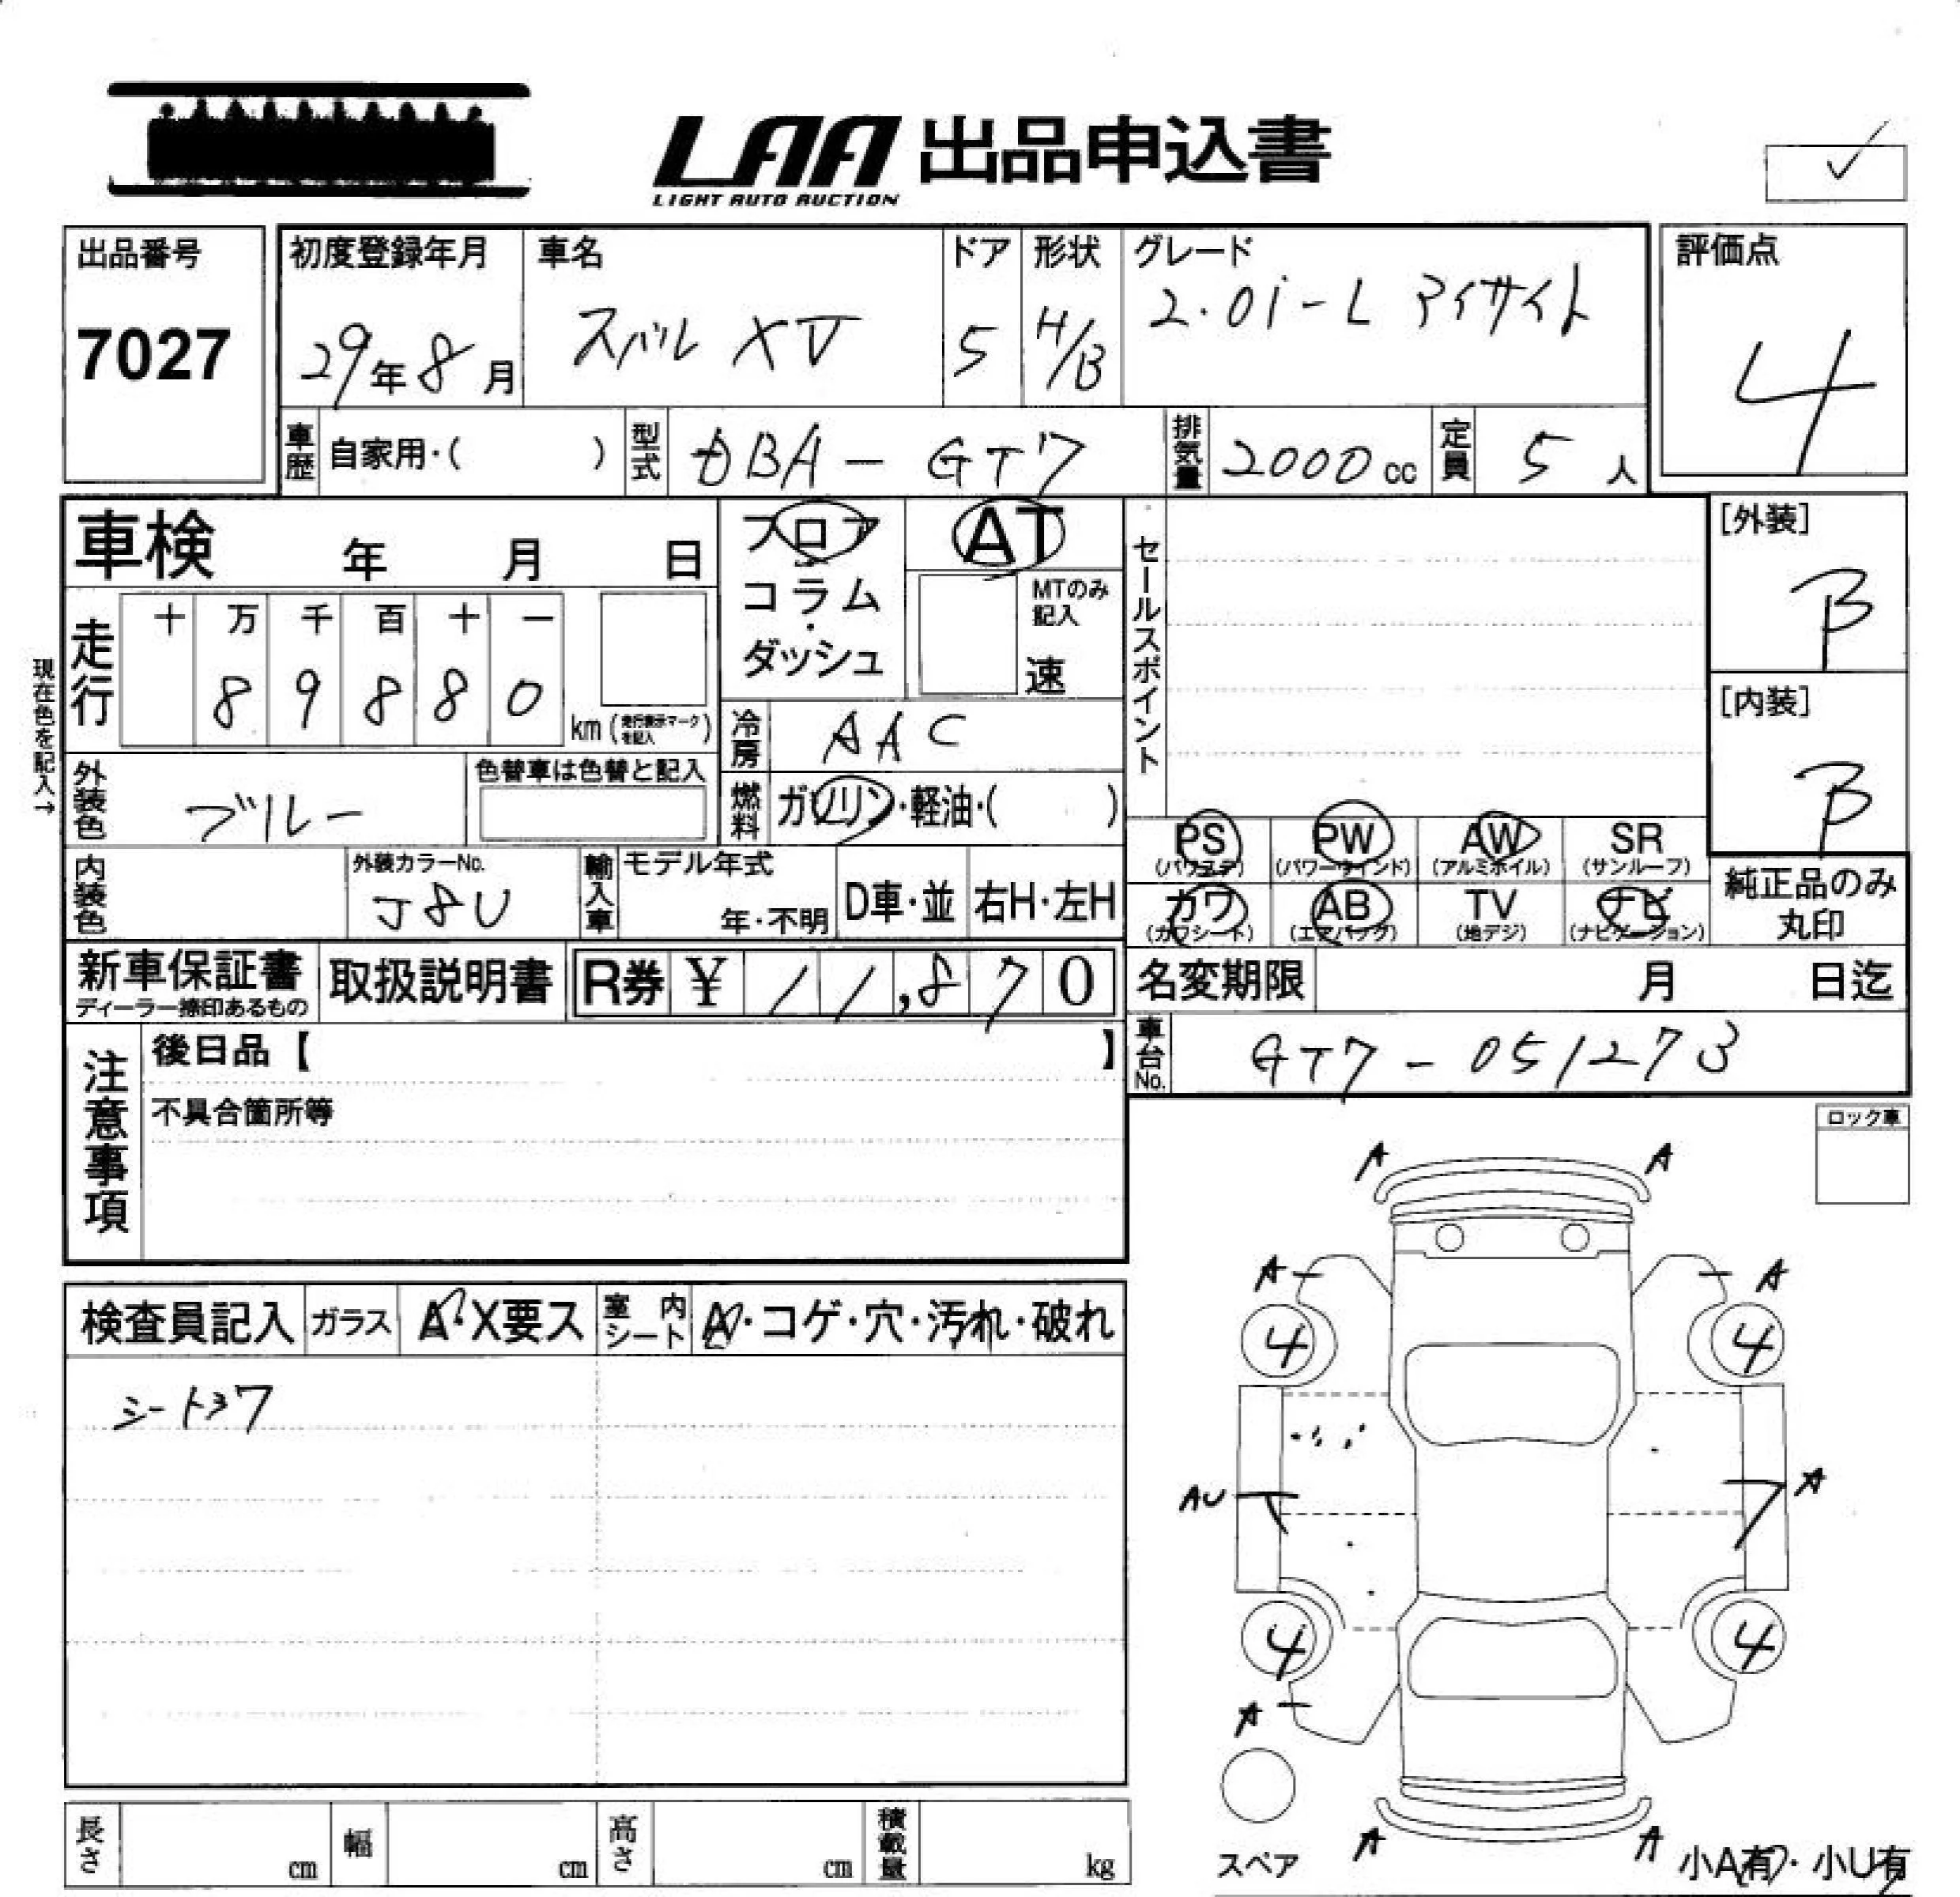 LAA 出品申込書
LIGHT AUTO AUCTION
✓
出品番号
7027
初度登録年月
29年8月
車名
スバル XV
ドア
5
形状
H/B
グレード
2.0i-L アイサイト
評価点
4
車歴 自家用・( )
型式 DBA-GT7
排気量 2000cc
定員 5人
車検 年 月 日
フロア
コラム
・
ダッシュ
AT
MTのみ
記入
速
セールスポイント
[外装]
B
[内装]
B
現在色を記入→
走行 十 万 千 百 十 一
8 9 8 8 0
km(走行表示マークを記入)
冷房 AAC
外装色 ブルー
色替車は色替と記入
燃料 ガソリン・軽油・( )
内装色
外装カラーNo.
J8U
輸入車
モデル年式
年・不明
D車・並
右H・左H
PS
(パワステ)
PW
(パワーウインド)
AW
(アルミホイル)
SR
(サンルーフ)
カワ
(カワシート)
AB
(エアバッグ)
TV
(地デジ)
ナビ
(ナビゲーション)
純正品のみ
丸印
新車保証書
ディーラー捺印あるもの
取扱説明書
R券 ¥ 11,870
名変期限 月 日迄
車台No. GT7-051273
注意事項
後日品【 】
不具合箇所等
ロック車
検査員記入 ガラス A・X要ス
室内シート A・コゲ・穴・汚れ・破れ
A A
A A
4 4
AU A
4 4
A
A A
スペア
小A有・小U有
長さ cm
幅 cm
高さ cm
積載量 kg